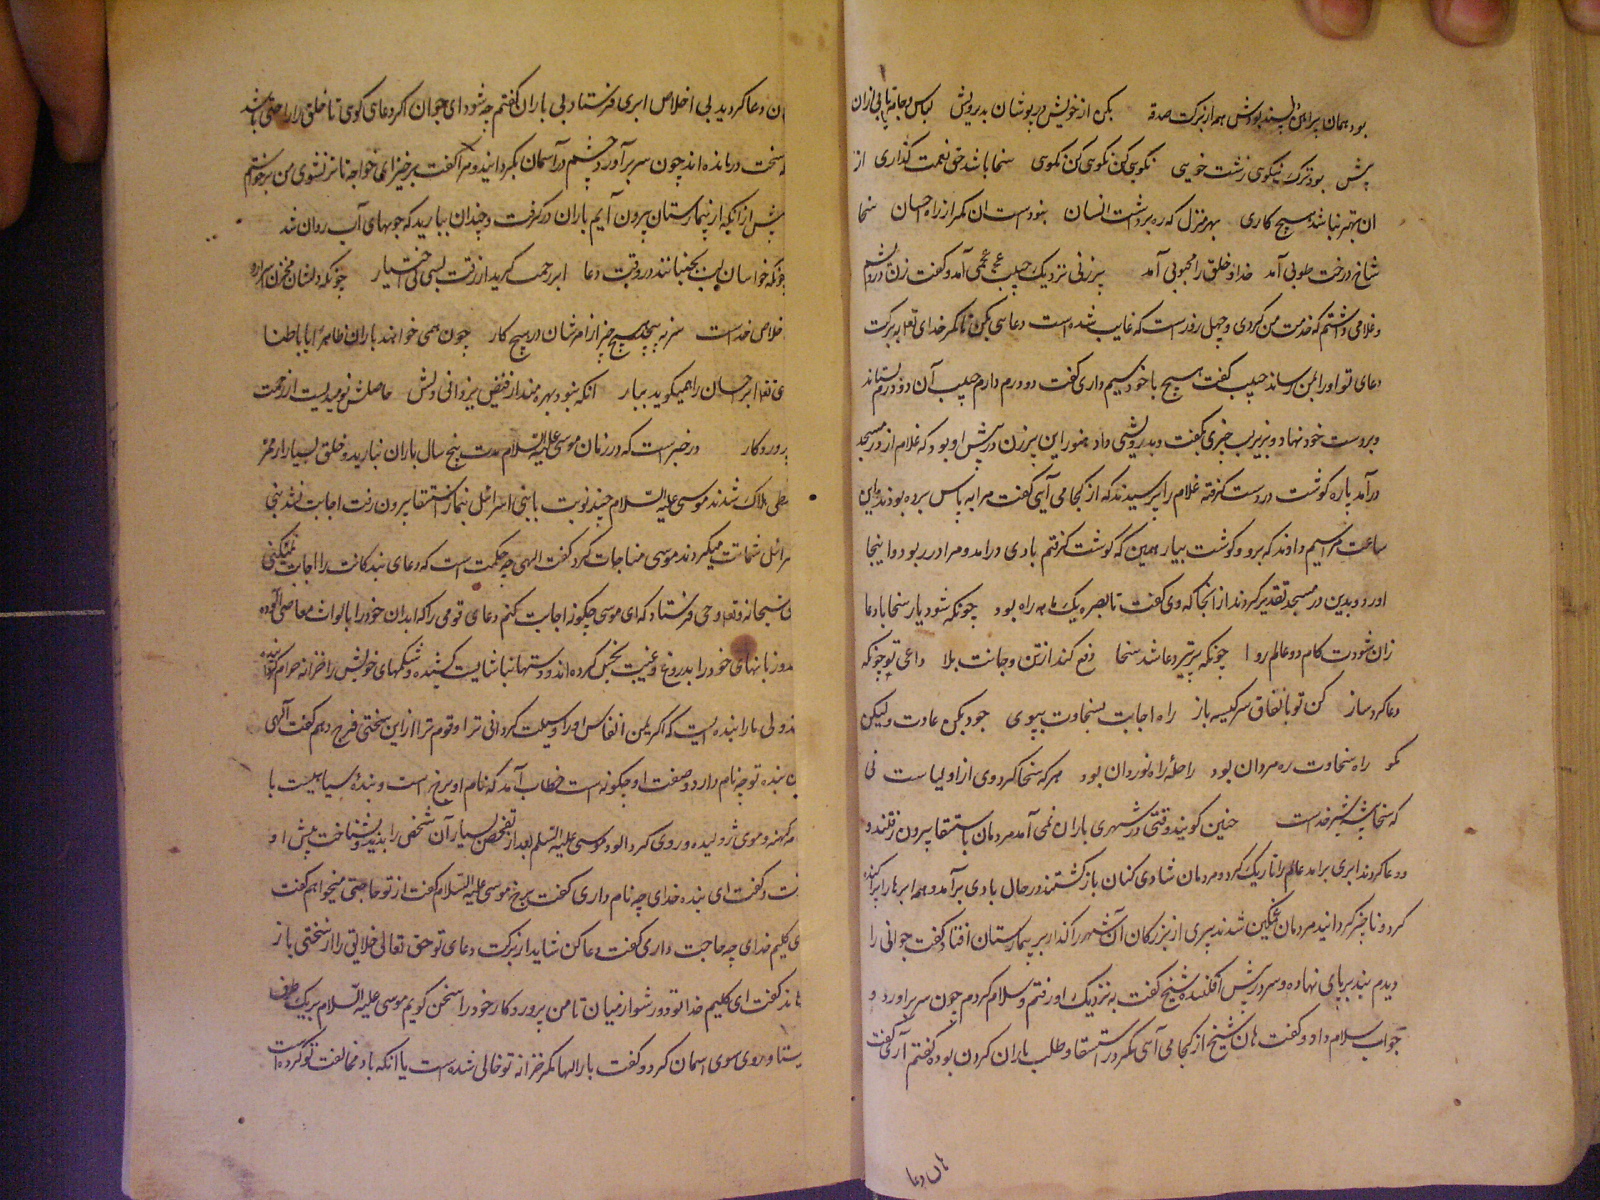 بود همان پیراهن پسند بودش همه از برکت صدقه بکن از خویش درپوشان بدرویش لباس و جامه پا بی ازان
پیش بود ترک نیکوی زشت خویی نکویی کن نکویی کن نکویی سخا باشد حق نعمت گذاری از
ان بهتر نباشد هیچ کاری بهر منزل که ره برداشت انسان بنودست ان مگر از راه احسان سخا
شاخ درخت طوبی آمد خدا و خلق را محبوبی آمد پیرزنی نزدیک حبیب عجمی آمد و گفت زن درویشم
و غلامی داشتم که خدمت من کردی و چهل روزست که غایب شده است دعایی بکن تا مگر خدای تعالی ببرکت
دعای تو او را بمن رساند حبیب گفت هیچ با خود سیم داری گفت دو درم دارم حبیب آن دو درم بستاند
و بر دست خود نهاد و بزیر لب چیزی بگفت و بدرویشی داد هنوز این پیرزن در پیش او بود که غلام از در مسجد
درآمد پاره گوشت در دست گرفته غلام را پرسیدند که از کجا می آیی گفت مرا به پاس برده بودند و این
ساعت مرا سیم دادند که برو و گوشت بیار همین که گوشت گرفتم بادی درامد و مرا در ربود و اینجا
اورد و بدین در مسجد تقدیر کردند از انجا که وی گفت تا بصره یک ماهه راه بود چونکه شود یار سخا با دعا
زان شودت کام دو عالم روا چونکه پر تیر دعا شد سخا دفع کند از تن و جانت بلا داعی تو چونکه
دعا کرد ساز کن تو بانفاق سر کیسه باز راه اجابت بسخاوت بپوی جود بکن عادت و لیکن
مگو راه سخاوت ره مردان بود راحله راه نوردان بود هر که سخا کرد وی از اولیاست نی
که سخا پیشه شیر خداست چنین گویند وقتی در شهری باران نمی آمد مردمان باستسقا بیرون رفتند و
و دعا کردند ابری برامد عالم را تاریک کرد و مردمان شادی کنان باز گشتند در حال بادی برآمد و همه ابرها را پراکنده
کرد و ناچیز گردانید مردمان غمگین شدند پیری از بزرکان آن شهر را گذار بر بیمارستان افتاد گفت جوانی را
دیدم بند بر پای نهاده و سر در پیش افکنده شیخ گفت به نزدیک او رفتم و سلام کردم چون سر براورد و
جواب سلام داد و گفت هان شیخ از کجا می آیی مگر در استسقا و طلب باران کردن بوده گفتم آری گفت
هان دعا
هان دعا کردید بی اخلاص ابری فرستاد بی باران گفتم چه شود ای جوان اکر دعای گوی تا خلق را راحتی باشد
سخت درمانده اند چون سر برآورد و چشم در آسمان بگردانید و مرا گفت برخیز ای خواجه تا تر نشوی من برخواستم
پیش از آنکه از بیمارستان بیرون آیم باران در گرفت و چندان ببارید که جویهای آب روان شد
چونکه خواسان لب بجنبانند در وقت دعا ابر رحمت گرید از رقت بسی بی اختیار چونکه دلشان مخزن اسرار
اخلاص خداست سر نه پیچد هیچ چیز از امرشان در هیچ کار چون همی خوانند باران ظاهرا یا باطنا
ابر احسان را همیگوید ببار انکه نبود بهره مند از فیض یزدانی دلش حاصلش نومیدیست از رحمت
پروردکار در خبرست که در زمان موسی علیه السلام مدت پنج سال باران نبارید و خلق بسیار از
قحطی هلاک شدند موسی علیه السلام چند نوبت با بنی اسرائیل بنماز استسقا بیرون رفت اجابت نشد بنی
سرائیل شماتت میکردند موسی مناجات کرد گفت الهی چه حکمت است که دعای بندکانت را اجابت نمیکنی
سبحانه و تعالی وحی فرستاد که ای موسی چگونه اجابت کنم دعای قومی را که ابدان خود را بالواث معاصی آلوده
اند و زبانهای خود را بدروغ و غیبت نجس کرده اند و دستها بناشایست کشیده و شکمهای خویش را خزانه حرام گردانیده
اند ولی مارا بنده ایست که اگر بیمن انفاس او را وسیلت گردانی ترا و قوم ترا از این سختی فرج دهم گفت الهی
این بنده تو چه نام دارد و صفت او چگونه است خطاب آمد که نام او برخ است و بنده سیاهیست با
جامه کهنه و موی ژولیده و روی گرد آلود موسی علیه السلم بعد از تفحص بسیار آن شخص را بدید و بشناخت پیش او
رفت و گفت ای بنده خدای چه نام داری گفت برخ موسی علیه السلام گفت از تو حاجتی میخواهم گفت
ای کلیم خدای چه حاجت داری گفت دعا کن شاید از برکت دعای تو حق تعالی خلایق را از سختی باز
رهاند گفت ای کلیم خدا تو دور شو از میان تا من پروردکار خود را سخن گویم موسی علیه السلام بر یک طرف
بیستاد و روی سوی اسمان کرد و گفت بار الها مگر خزانه تو خالی شده است یا انکه باد مخالفت تو کرده است